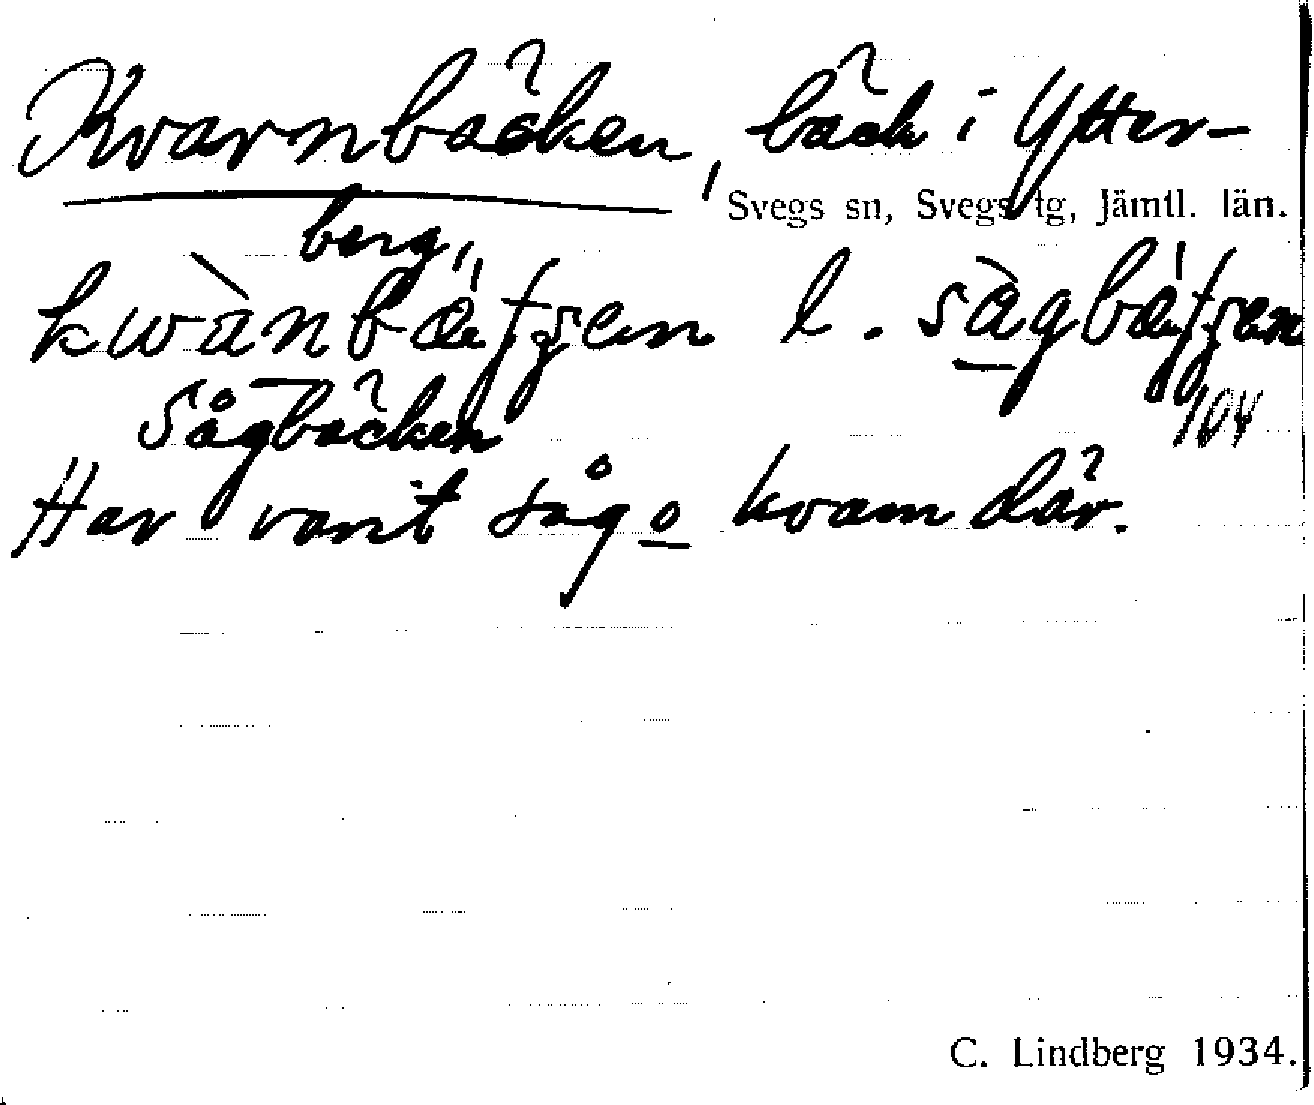 Kvarnbäcken, bäck i Ytter-
Svegs sn, Svegs tg, Jämtl. län.
berg,
kwànbæ̨ţʂen l. sàgbæ̨ţʂen
Sågbäcken 104
Har varit såg o kvarn där.
C. Lindberg 1934.